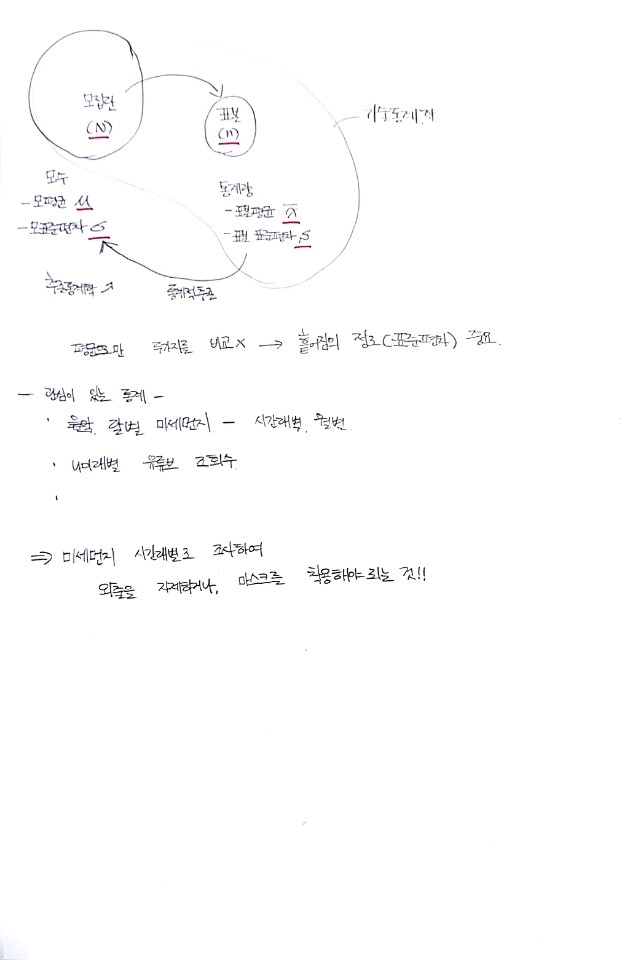 모집단
(N)
표본
(n)
기술통계학
모수
- 모평균 μ
- 모표준편차 σ
통계량
- 표본평균 x̄
- 표본 표준편차 s
추론통계학
통계적추론
평균으로만 두가지를 비교X → 흩어짐의 정도(표준편차) 중요.
- 관심이 있는 통계 -
· 월별 미세먼지 - 시간대별, 월별
· 나이대별 유튜브 조회수
·
⇒ 미세먼지 시간대별로 조사하여
외출을 자제하거나, 마스크를 착용해야 되는 것!!